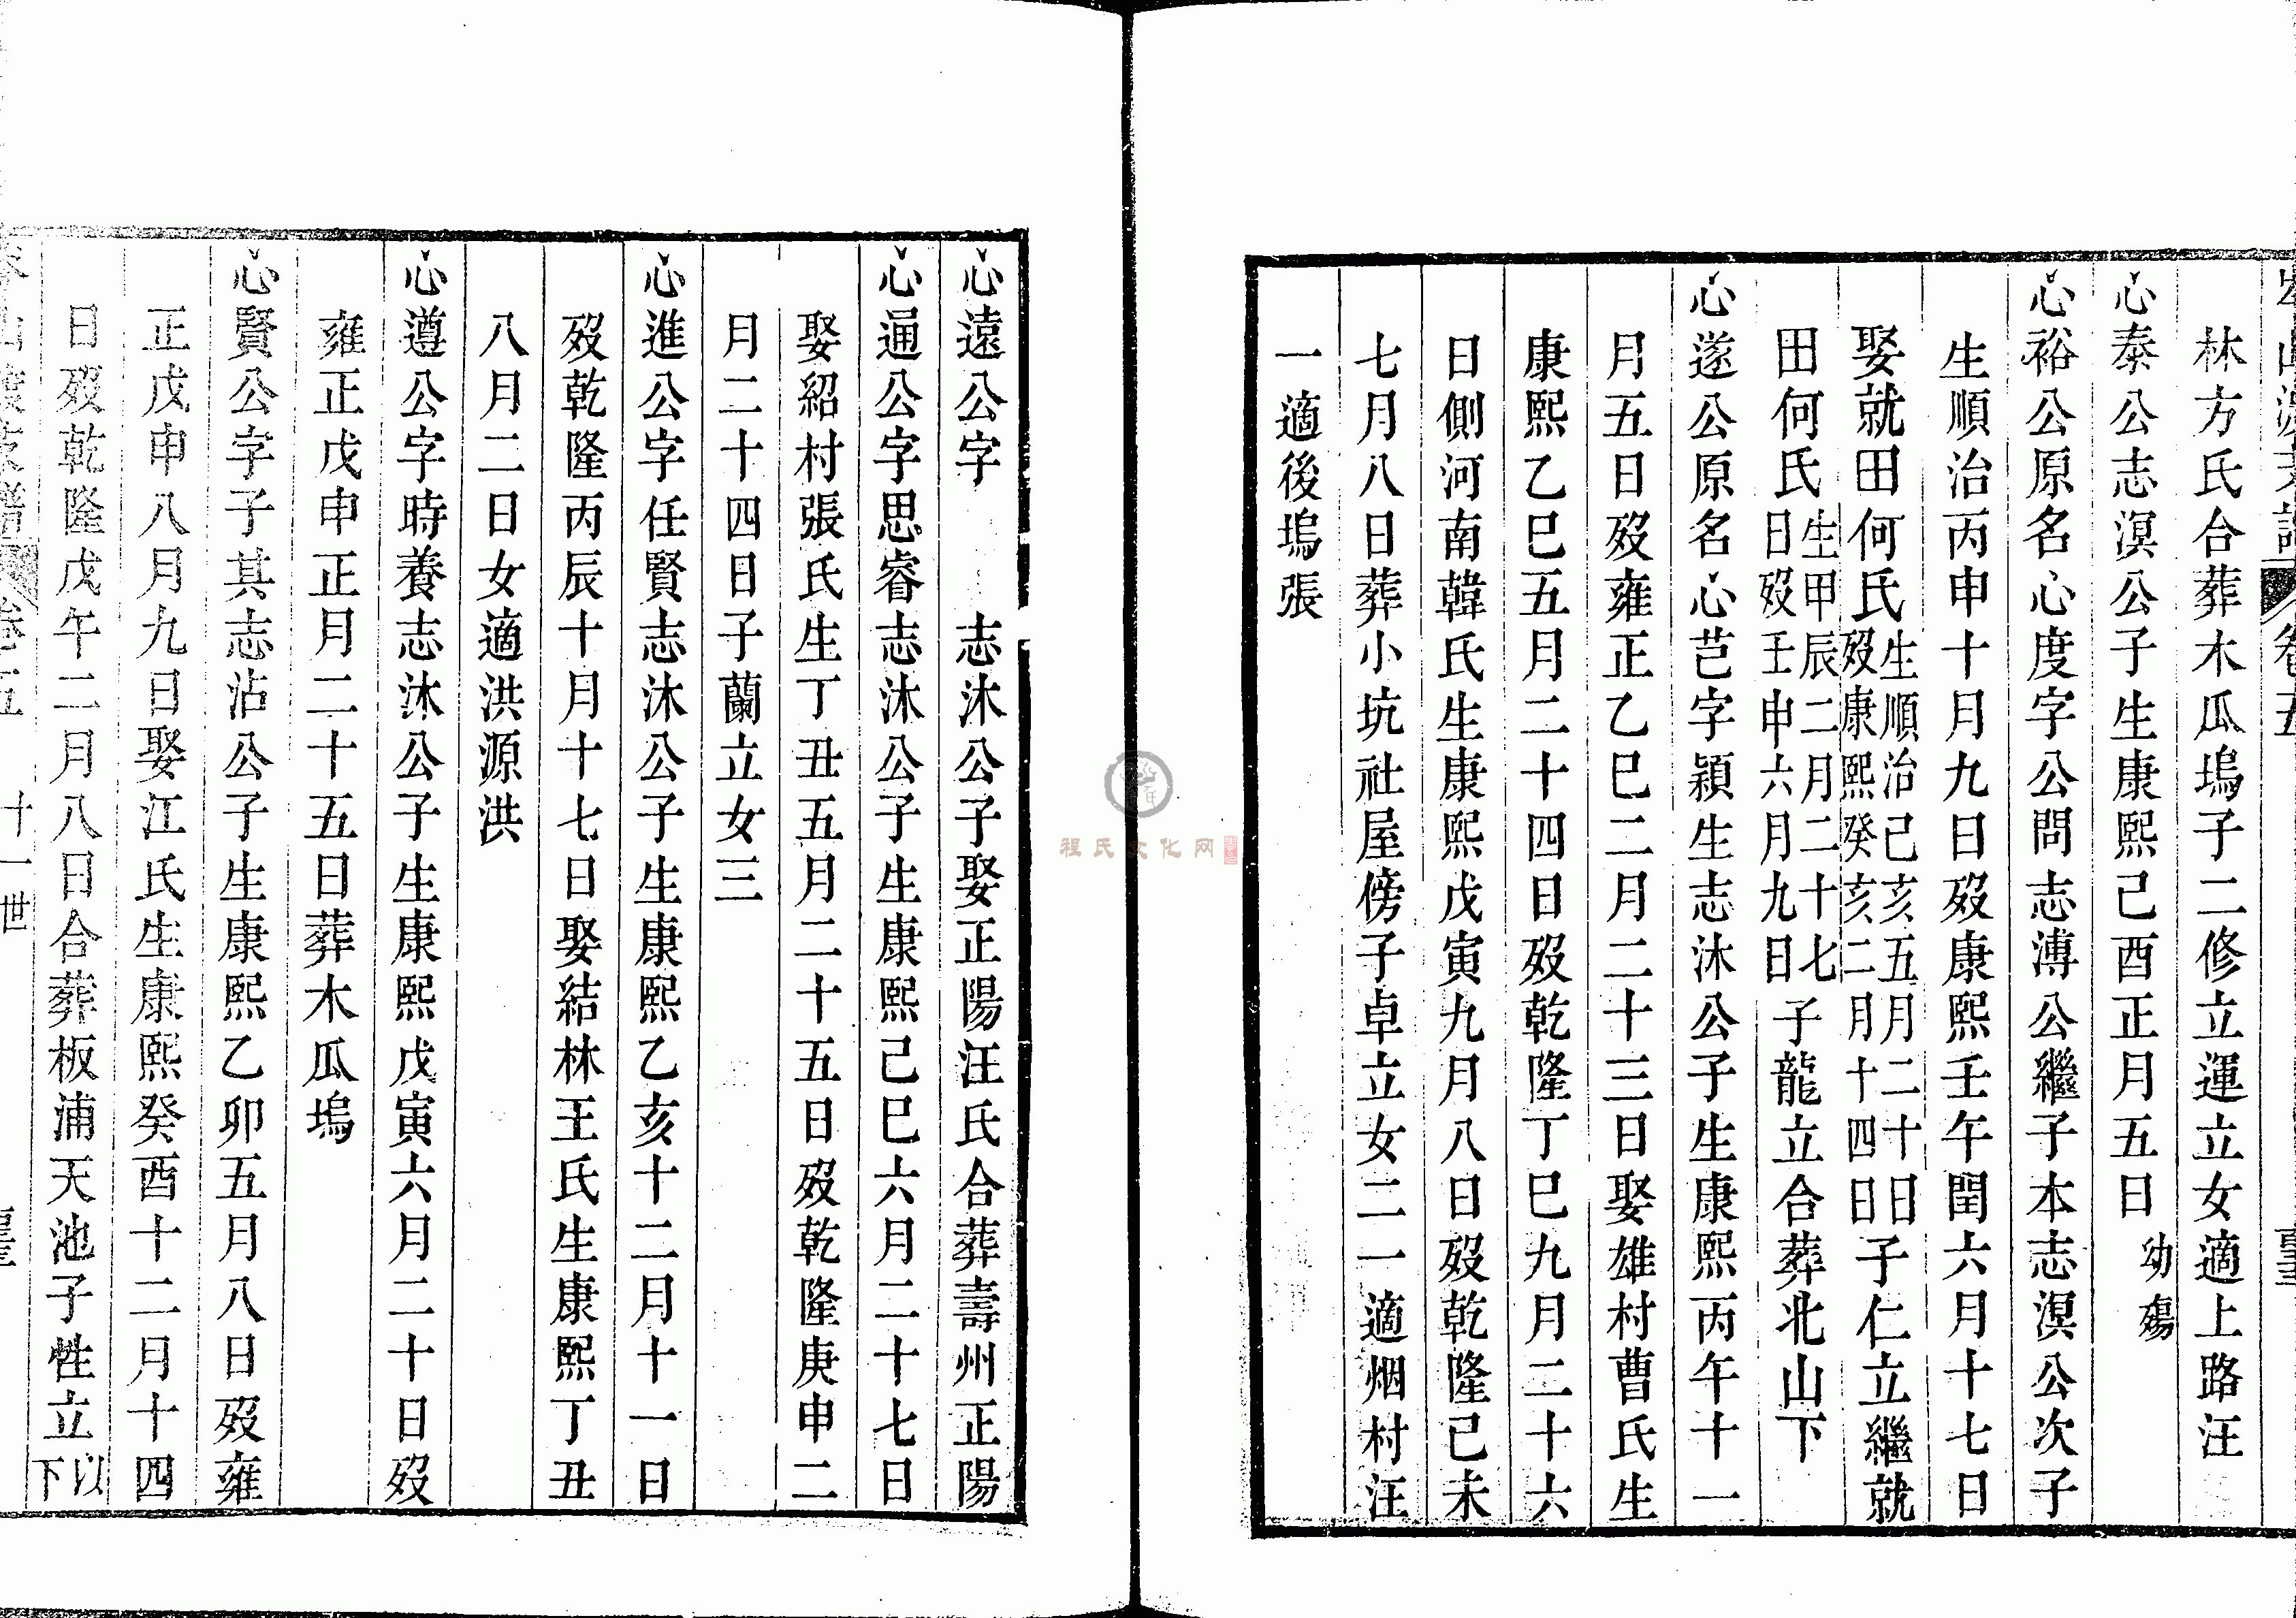 卷五
林方氏合葬木瓜塢子二修立運立女適上路汪
心泰公志溟公子生康熙己酉正月五日幼殤
心裕公原名心度字公問志溥公繼子本志溟公次子
生順治丙申十月九日歿康熙壬午閏六月十七日
娶就田何氏生順治己亥五月二十日歿康熙癸亥二月十四日子仁立繼就
田何氏生甲辰二月二十七日歿壬申六月九日子龍立合葬北山下
心遂公原名心芑字潁生志沐公子生康熙丙午十一
月五日歿雍正乙巳二月二十三日娶雄村曹氏生
康熙乙巳五月二十四日歿乾隆丁巳九月二十六
日側河南韓氏生康熙戊寅九月八日歿乾隆己未
七月八日葬小坑社屋傍子卓立女二一適烟村汪
一適後塢張
心遠公字　志沐公子娶正陽汪氏合葬壽州正陽
心通公字思睿志沐公子生康熙己巳六月二十七日
娶紹村張氏生丁丑五月二十五日歿乾隆庚申二
月二十四日子蘭立女三
心進公字任賢志沐公子生康熙乙亥十二月十一日
歿乾隆丙辰十月十七日娶結林王氏生康熙丁丑
八月二日女適洪源洪
心遵公字時養志沐公子生康熙戊寅六月二十日歿
雍正戊申正月二十五日葬木瓜塢
心賢公字子其志沾公子生康熙乙卯五月八日歿雍
正戊申八月九日娶江氏生康熙癸酉十二月十四
日歿乾隆戊午二月八日合葬板浦天池子甡立以下
卷五　十一世
程氏文化网